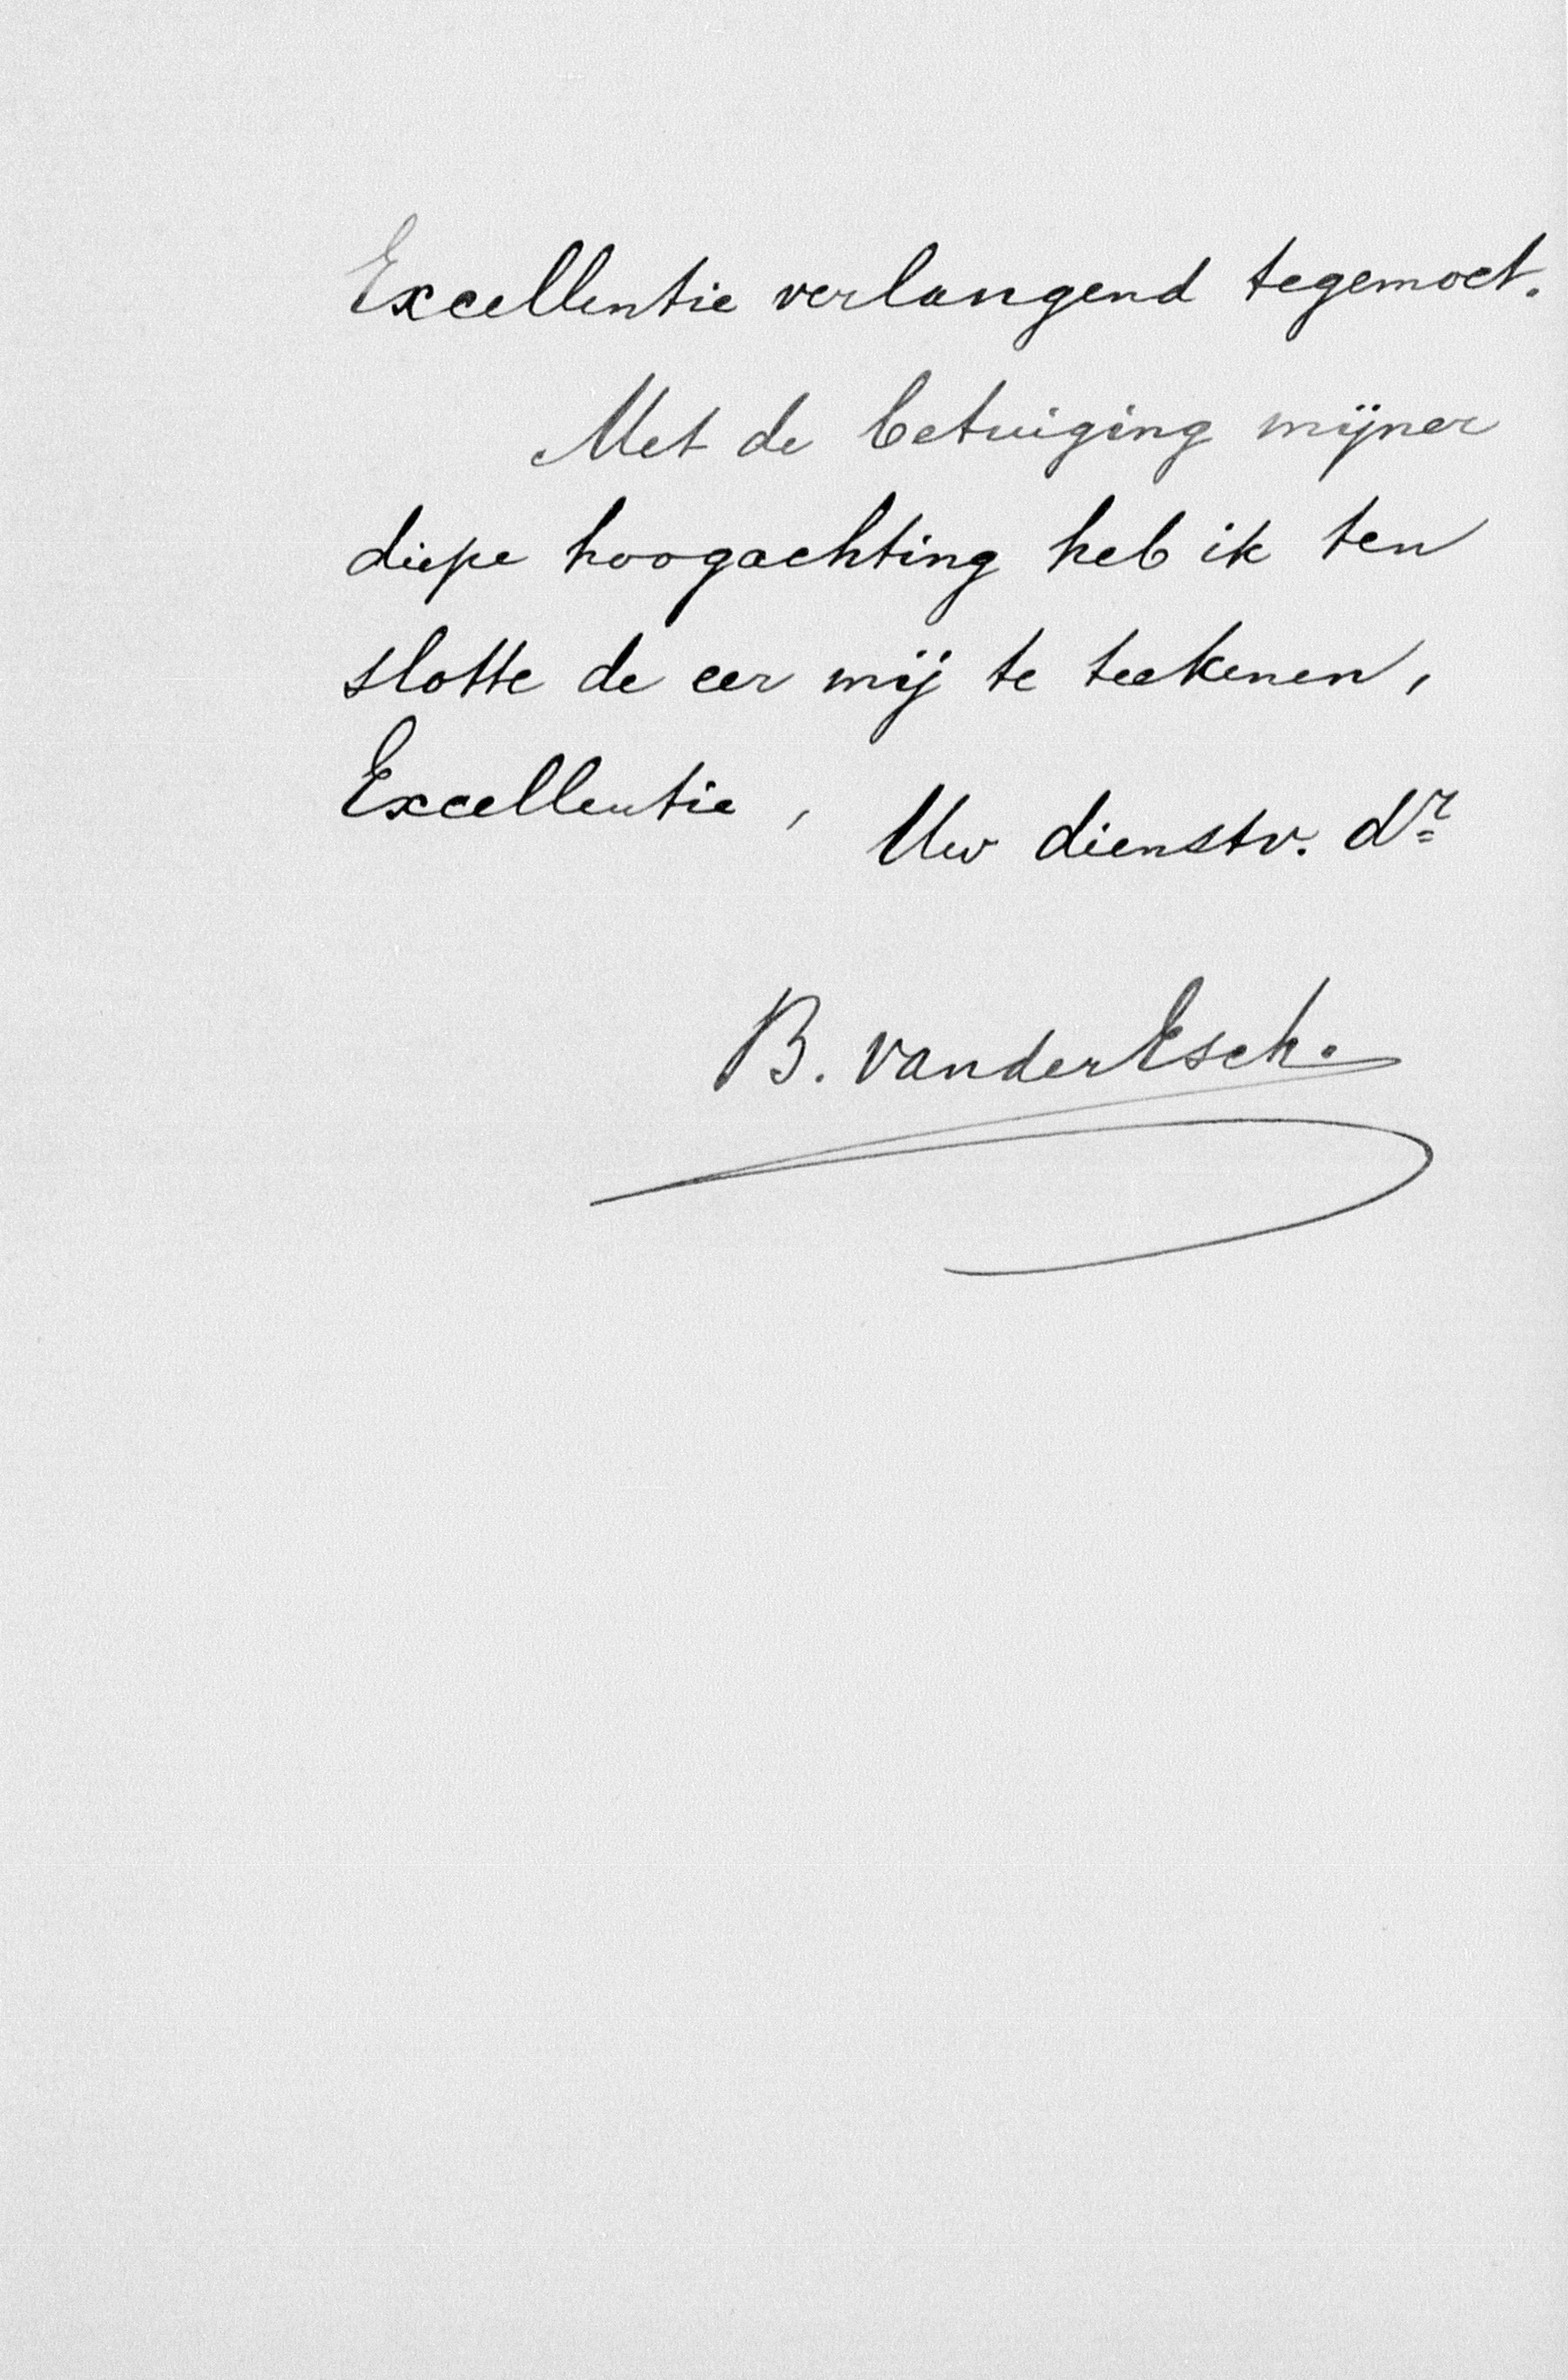 Excellentie verlangend tegemoet.
Met de betuiging mijner
diepe hoogachting heb ik ten
slotte de eer mij te teekenen,
Excellentie, Uw dienstv. dr
B. van der Esch.